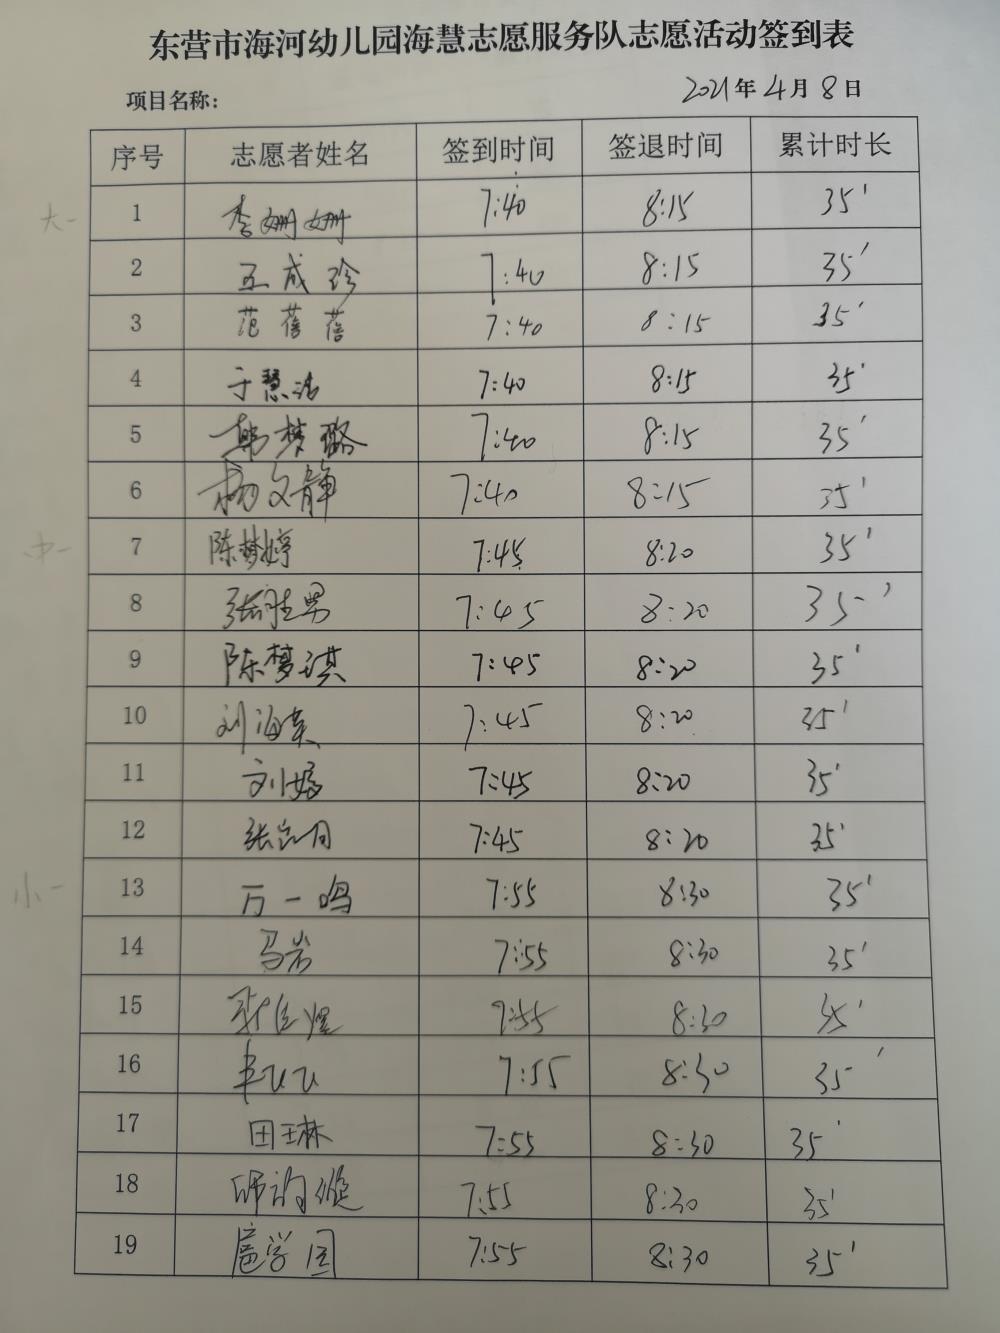 东营市海河幼儿园海慧志愿服务队志愿活动签到表
项目名称： 2021年4月8日
序号 志愿者姓名 签到时间 签退时间 累计时长
大一 1 李姗姗 7:40 8:15 35'
2 王成珍 7:40 8:15 35'
3 范蓓蓓 7:40 8:15 35'
4 于慧洁 7:40 8:15 35'
5 韩梦璐 7:40 8:15 35'
6 杨文静 7:40 8:15 35'
中一 7 陈梦婷 7:45 8:20 35'
8 张胜男 7:45 8:20 35'
9 陈梦琪 7:45 8:20 35'
10 刘海英 7:45 8:20 35'
11 刘婷 7:45 8:20 35'
12 张 7:45 8:20 35'
小一 13 万一鸣 7:55 8:30 35'
14 马岩 7:55 8:30 35'
15 7:55 8:30 35'
16 7:55 8:30 35'
17 田玉琳 7:55 8:30 35'
18 7:55 8:30 35'
19 7:55 8:30 35'